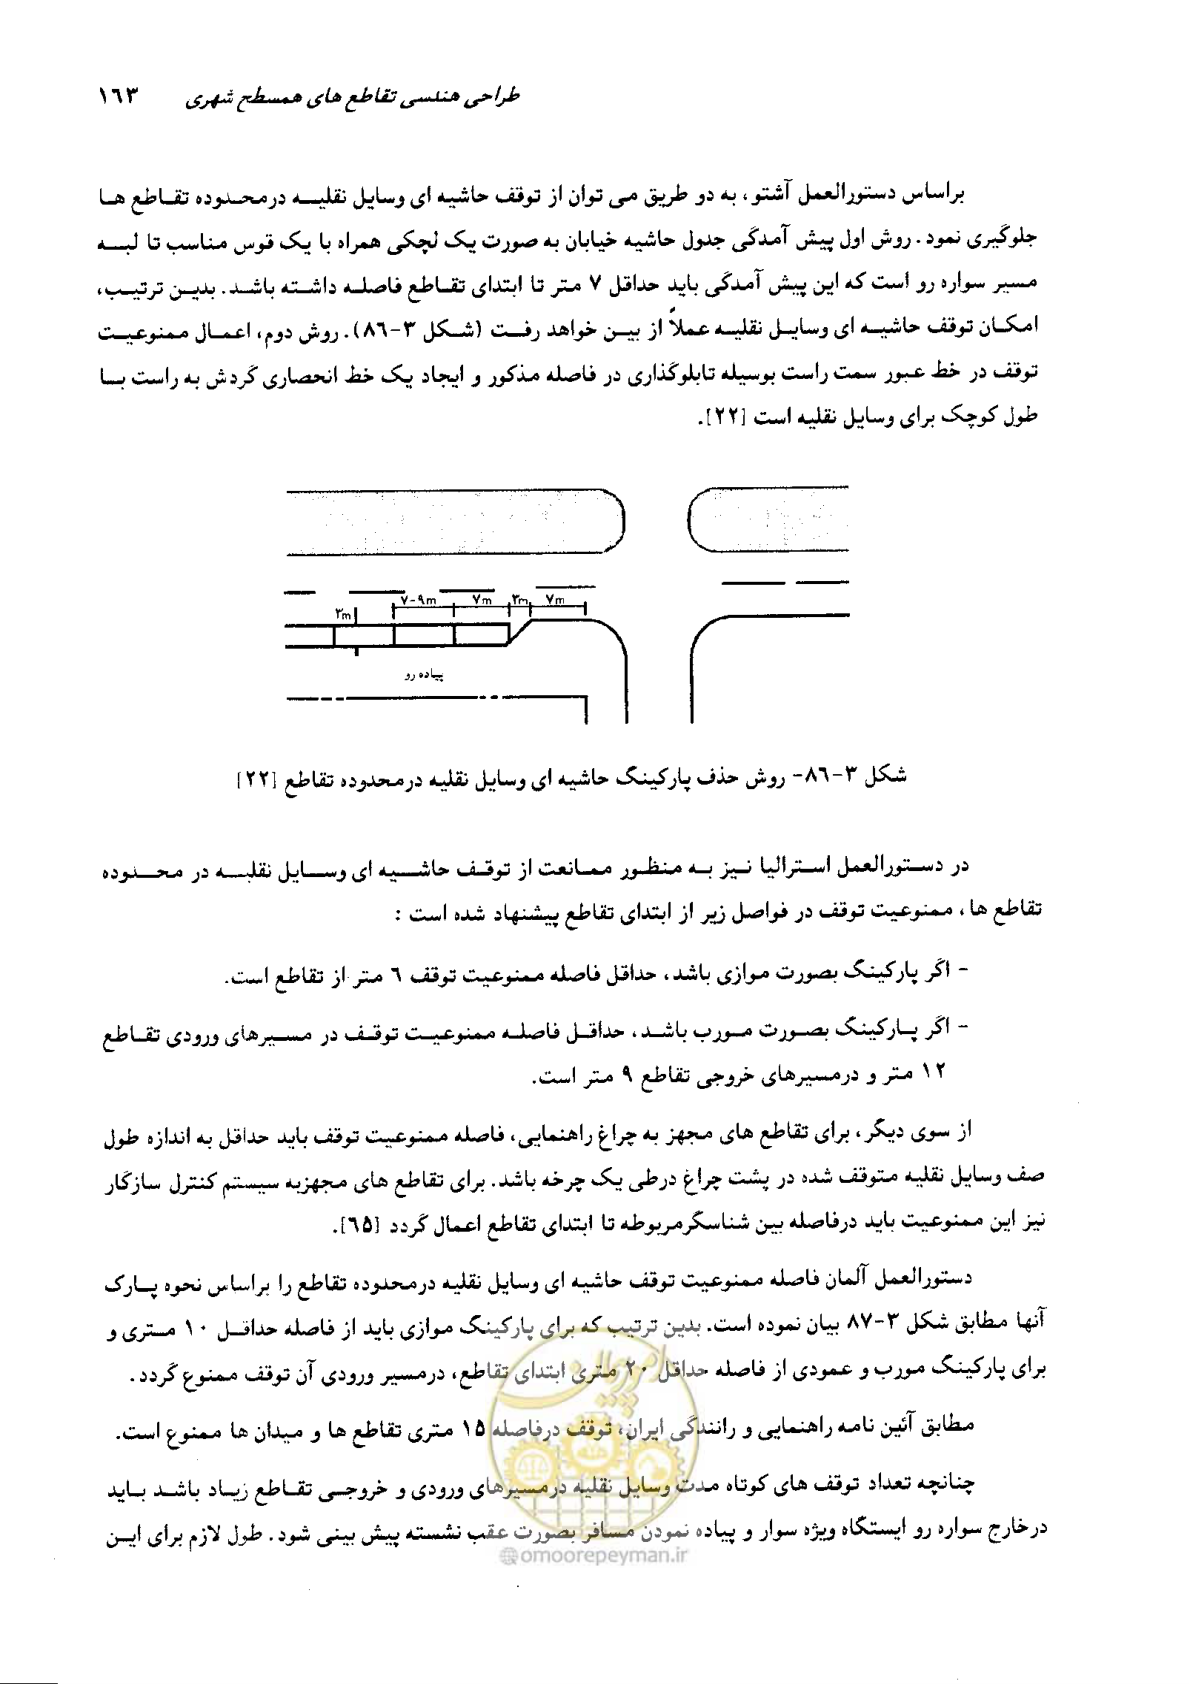 طراحی هندسی تقاطع های همسطح شهری ۱۶۳
براساس دستورالعمل آشتو، به دو طریق می توان از توقف حاشیه ای وسایل نقلیه درمحدوده تقاطع ها
جلوگیری نمود. روش اول پیش آمدگی جدول حاشیه خیابان به صورت یک لچکی همراه با یک قوس مناسب تا لبه
مسیر سواره رو است که این پیش آمدگی باید حداقل ۷ متر تا ابتدای تقاطع فاصله داشته باشد. بدین ترتیب،
امکان توقف حاشیه ای وسایل نقلیه عملاً از بین خواهد رفت (شکل ۳-۸۶). روش دوم، اعمال ممنوعیت
توقف در خط عبور سمت راست بوسیله تابلوگذاری در فاصله مذکور و ایجاد یک خط انحصاری گردش به راست با
طول کوچک برای وسایل نقلیه است [۲۲].
۷-۹m ۷m ۳m ۷m
۳m
پیاده رو
شکل ۳-۸۶- روش حذف پارکینگ حاشیه ای وسایل نقلیه درمحدوده تقاطع [۲۲]
در دستورالعمل استرالیا نیز به منظور ممانعت از توقف حاشیه ای وسایل نقلیه در محدوده
تقاطع ها، ممنوعیت توقف در فواصل زیر از ابتدای تقاطع پیشنهاد شده است :
- اگر پارکینگ بصورت موازی باشد، حداقل فاصله ممنوعیت توقف ۶ متر از تقاطع است.
- اگر پارکینگ بصورت مورب باشد، حداقل فاصله ممنوعیت توقف در مسیرهای ورودی تقاطع
۱۲ متر و درمسیرهای خروجی تقاطع ۹ متر است.
از سوی دیگر، برای تقاطع های مجهز به چراغ راهنمایی، فاصله ممنوعیت توقف باید حداقل به اندازه طول
صف وسایل نقلیه متوقف شده در پشت چراغ درطی یک چرخه باشد. برای تقاطع های مجهزبه سیستم کنترل سازگار
نیز این ممنوعیت باید درفاصله بین شناسگرمربوطه تا ابتدای تقاطع اعمال گردد [۶۵].
دستورالعمل آلمان فاصله ممنوعیت توقف حاشیه ای وسایل نقلیه درمحدوده تقاطع را براساس نحوه پارک
آنها مطابق شکل ۳-۸۷ بیان نموده است. بدین ترتیب که برای پارکینگ موازی باید از فاصله حداقل ۱۰ متری و
برای پارکینگ مورب و عمودی از فاصله حداقل ۲۰ متری ابتدای تقاطع، درمسیر ورودی آن توقف ممنوع گردد.
مطابق آئین نامه راهنمایی و رانندگی ایران، توقف درفاصله ۱۵ متری تقاطع ها و میدان ها ممنوع است.
چنانچه تعداد توقف های کوتاه مدت وسایل نقلیه درمسیرهای ورودی و خروجی تقاطع زیاد باشد باید
درخارج سواره رو ایستگاه ویژه سوار و پیاده نمودن مسافر بصورت عقب نشسته پیش بینی شود. طول لازم برای این
@omoorepeyman.ir